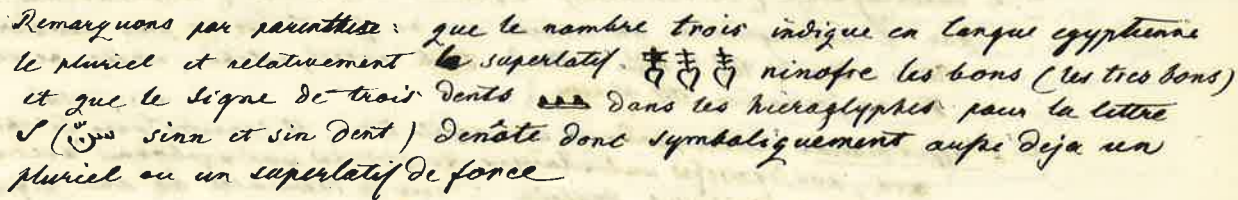 Remarquons par parenthese: que le nombre trois indique en langue egyptienne
le pluriel et relativement le superlatif 𓄤𓄤𓄤 ninofre les bons (les tres bons)
et que le signe de trois dents dans les hieroglyphes pour la lettre
S (سنّ sinn et sin dent) denote donc symboliquement aussi deja un
pluriel ou un superlatif de force